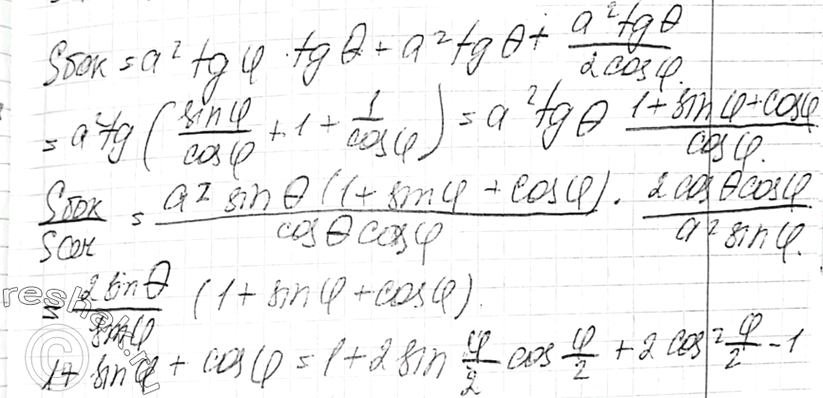 Sбок = a² tgφ · tgθ + a² tgθ + a² tgθ / 2cosφ.
= a² tg (sinφ/cosφ + 1 + 1/cosφ) = a² tgθ (1 + sinφ + cosφ)/cosφ.
Sбок/Sсеч = a² sinθ (1 + sinφ + cosφ)/(cosθ cosφ) · 2cosθ cosφ/(a² sinφ).
= 2sinθ/sinφ (1 + sinφ + cosφ).
1 + sinφ + cosφ = 1 + 2 sin φ/2 cos φ/2 + 2 cos² φ/2 - 1
reshak.ru